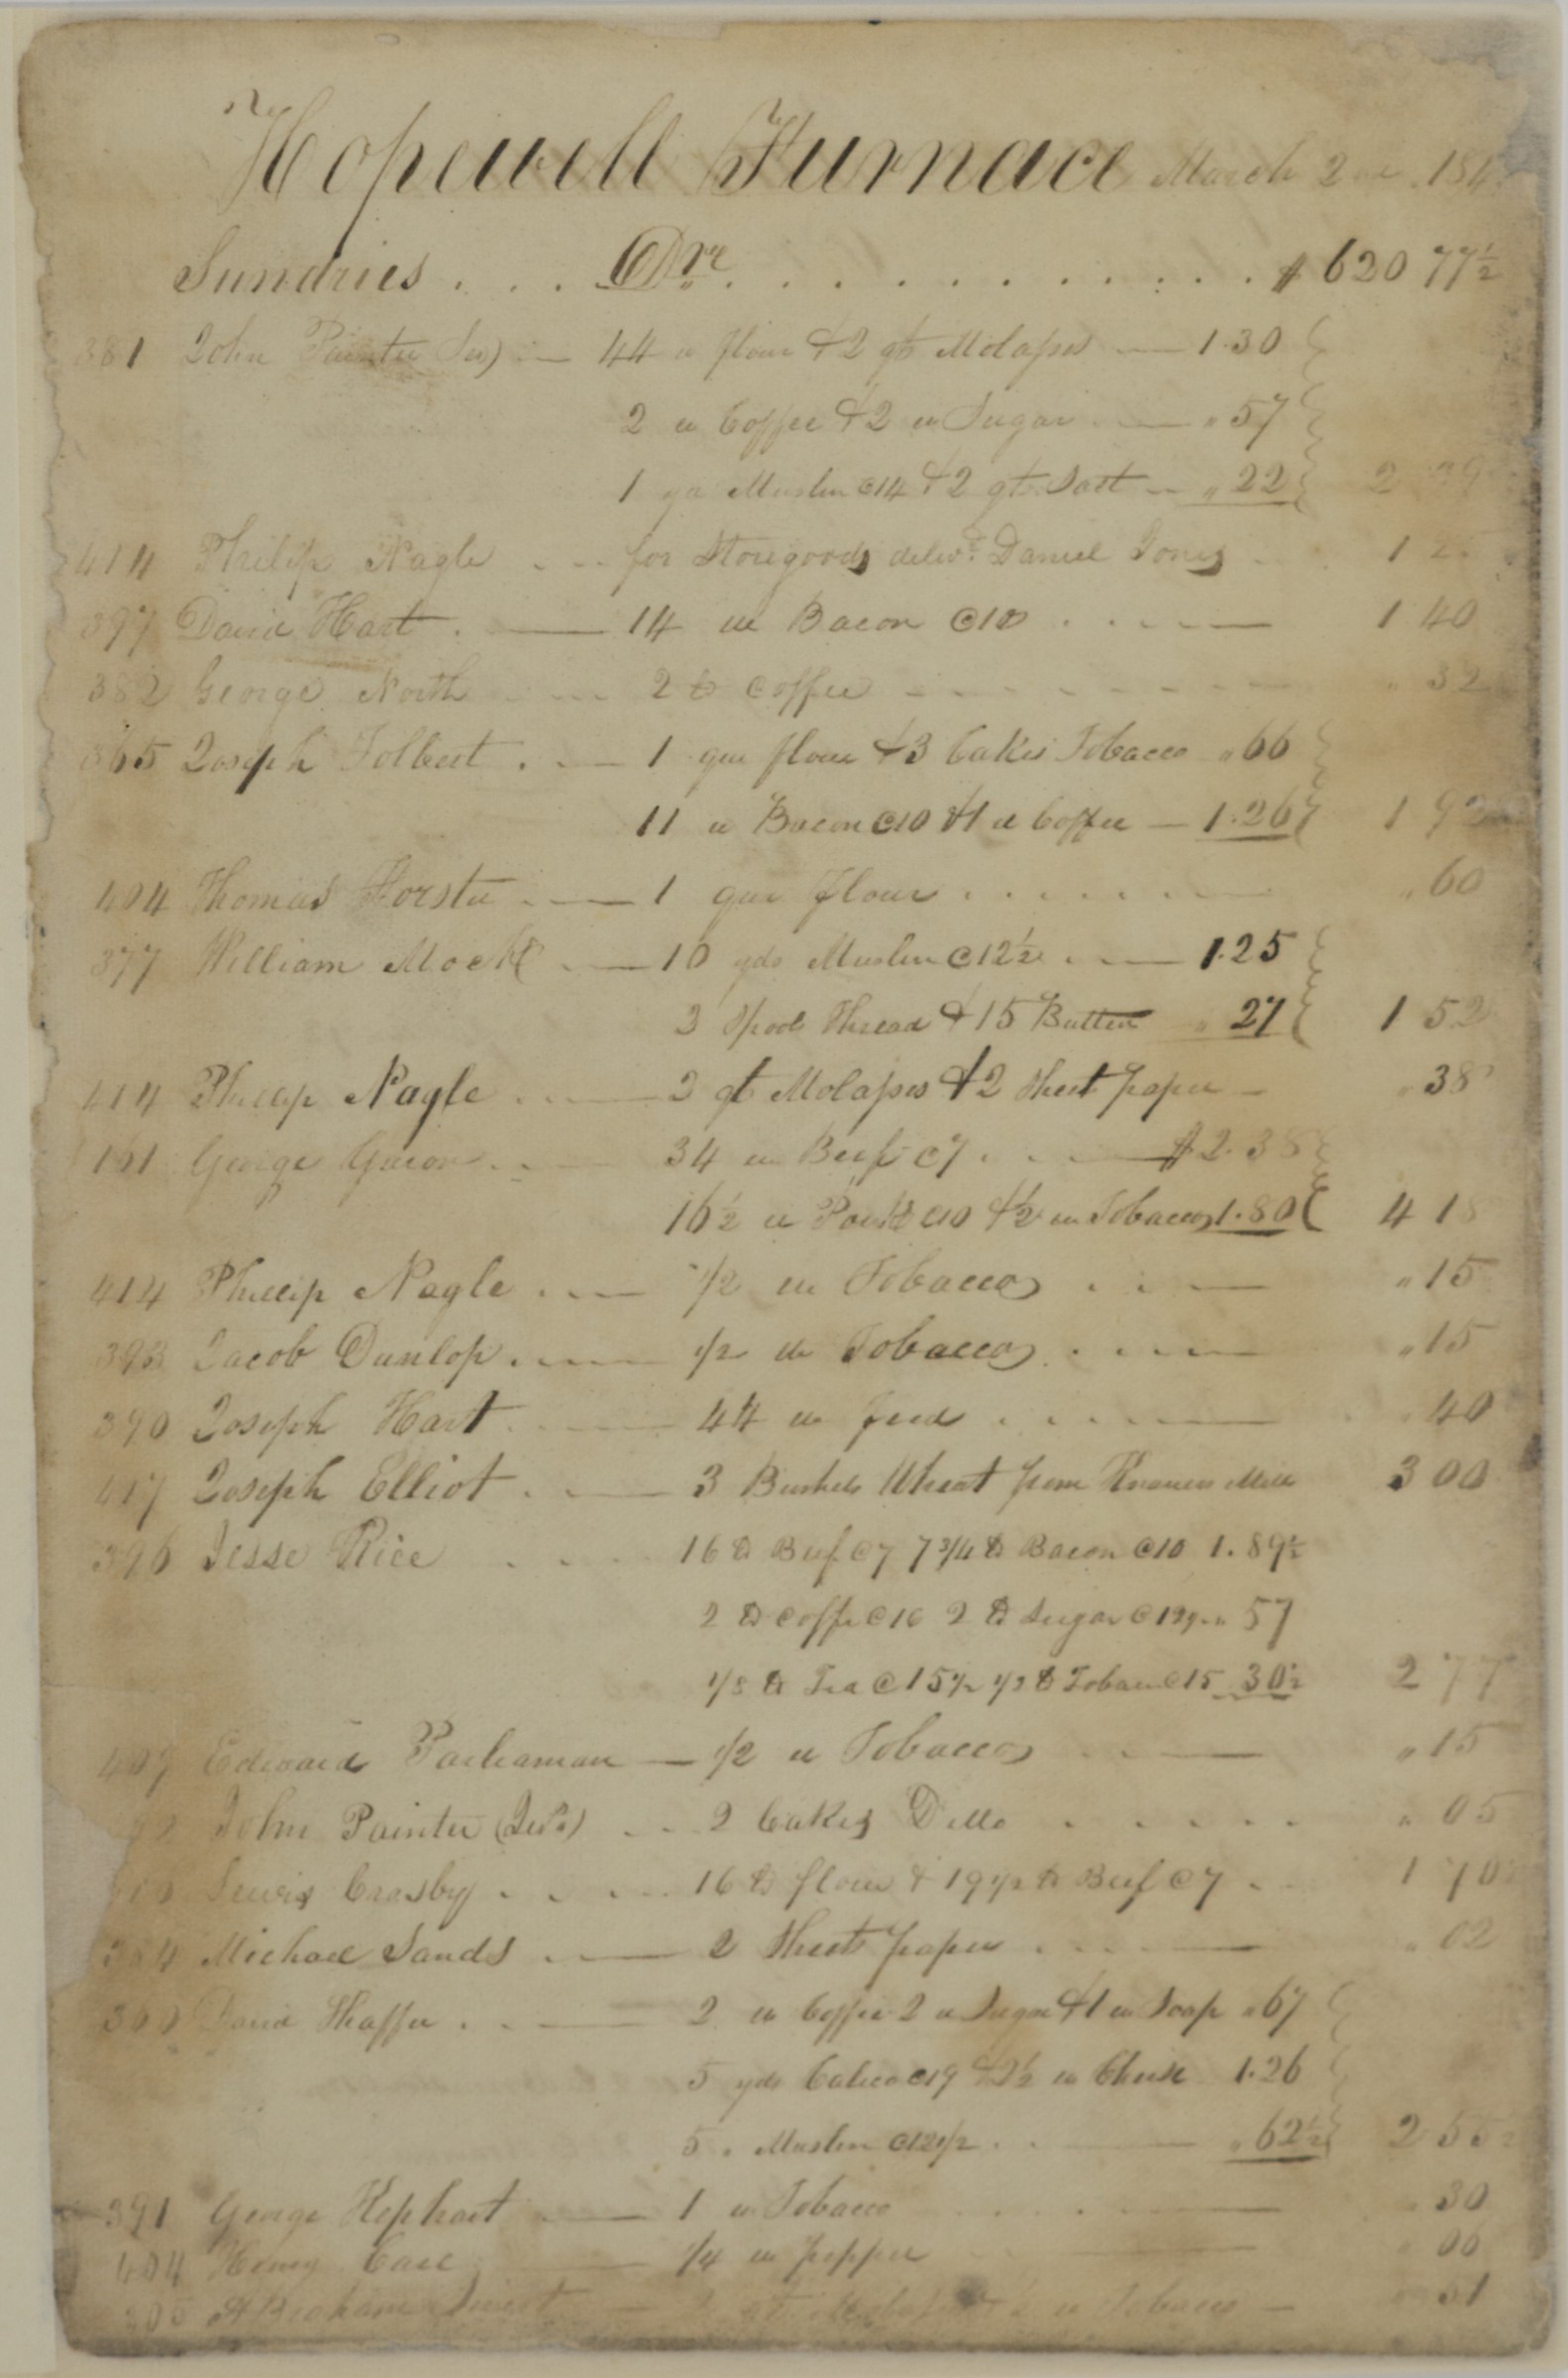 Hopewell Furnace March 2nd 184
Sundries . . . Drs . . . . . . . . . . . . $ 620 77½
381 John Painter Sen) — 44 lb flour & 2 qts Molasses — 1.30
2 lb Coffee & 2 lb Sugar — „ 57
1 yd Muslin @14 & 2 qts Salt — „ 22 2 09
414 Philip Nagle . . . for Storegoods delivd Daniel Jones 1 25
397 David Hart . — 14 lb Bacon @10 . . . — 1 40
382 George North 2 lb Coffee - - - - - - „ 32
365 Joseph Tolbert . — 1 qur flour & 3 Cakes Tobacco „ 66
11 lb Bacon @10 & 1 lb Coffee — 1.26 1 92
404 Thomas — 1 qur flour . . . . . . — „ 60
377 William Mock — 10 yds Muslin @12½ . — 1.25
3 Spool Thread & 15 Button „ 27 1 52
414 Phillip Nagle . — 2 qt Molasses & 2 Sheet paper — „ 38
161 George . — 34 lb Beef @7 . . — $2.38
16½ lb Pork @10 & ½ lb Tobacco 1.80 4 18
414 Phillip Nagle . — ½ lb Tobacco . . — „ 15
393 Jacob Dunlop . — ½ lb Tobacco . . — „ 15
390 Joseph Hart . — 44 lb feed . . . — „ 40
417 Joseph Elliot . — 3 Bushels Wheat from Mill 3 00
396 Jesse Rice . . . 16 lb Beef @7 7 3/4 lb Bacon @10 1.89½
2 lb Coffe @16 2 lb Sugar @12½ „ 57
1/8 lb Tea @15½ 1/2 lb Tobacco @15 30½ 2 77
407 Edward Parliaman — ½ lb Tobacco . — „ 15
John Painter (Jur.) . . 2 Cakes Ditto . . . . . „ 05
Lewis Crosby . . . 16 lb flour & 19½ lb Beef @7 . 1 70
364 Michael Sands . — 2 Sheets paper . . — „ 02
360 David Shaffer . . — 2 lb Coffee 2 lb Sugar & 1 lb Soap „ 67
5 yds Calico @19 & 2½ lb Cheese 1.26
5 „ Muslin @12½ . . — „ 62½ 2 55½
391 George Hephart — 1 lb Tobacco . . . — „ 30
404 Henry Care — ¼ lb pepper — „ 06
Abraham — 2 qt Molasses & ½ lb Tobacco — „ 51